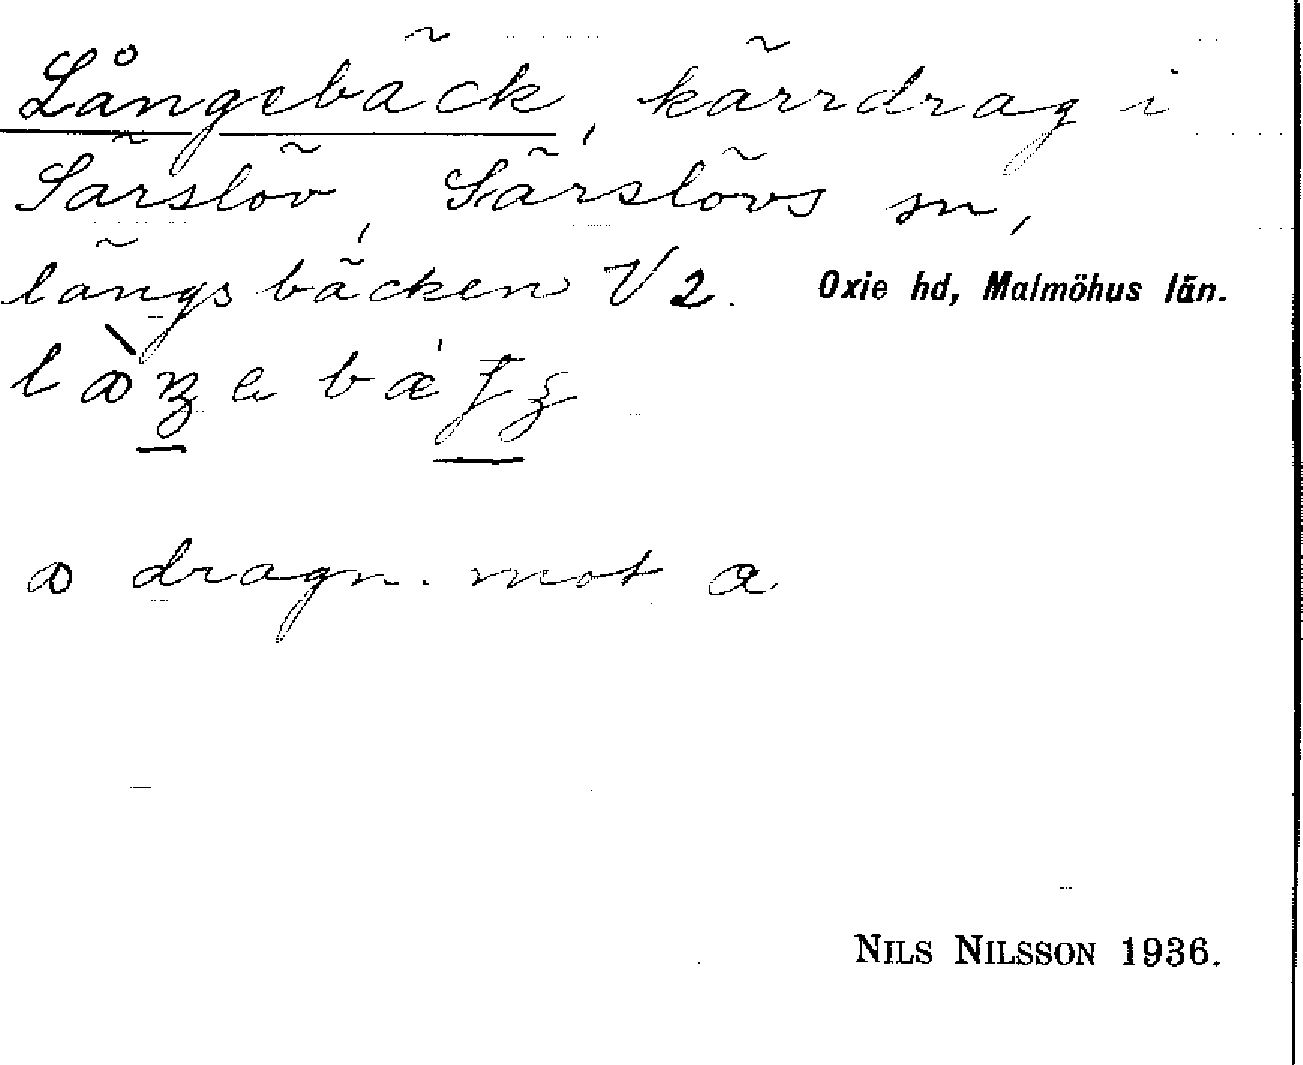 Långebäck, kärrdrag i
Särslöv, Särslövs sn,
längs bäcken V 2. Oxie hd, Malmöhus län.
dragn. mot
NILS NILSSON 1936.